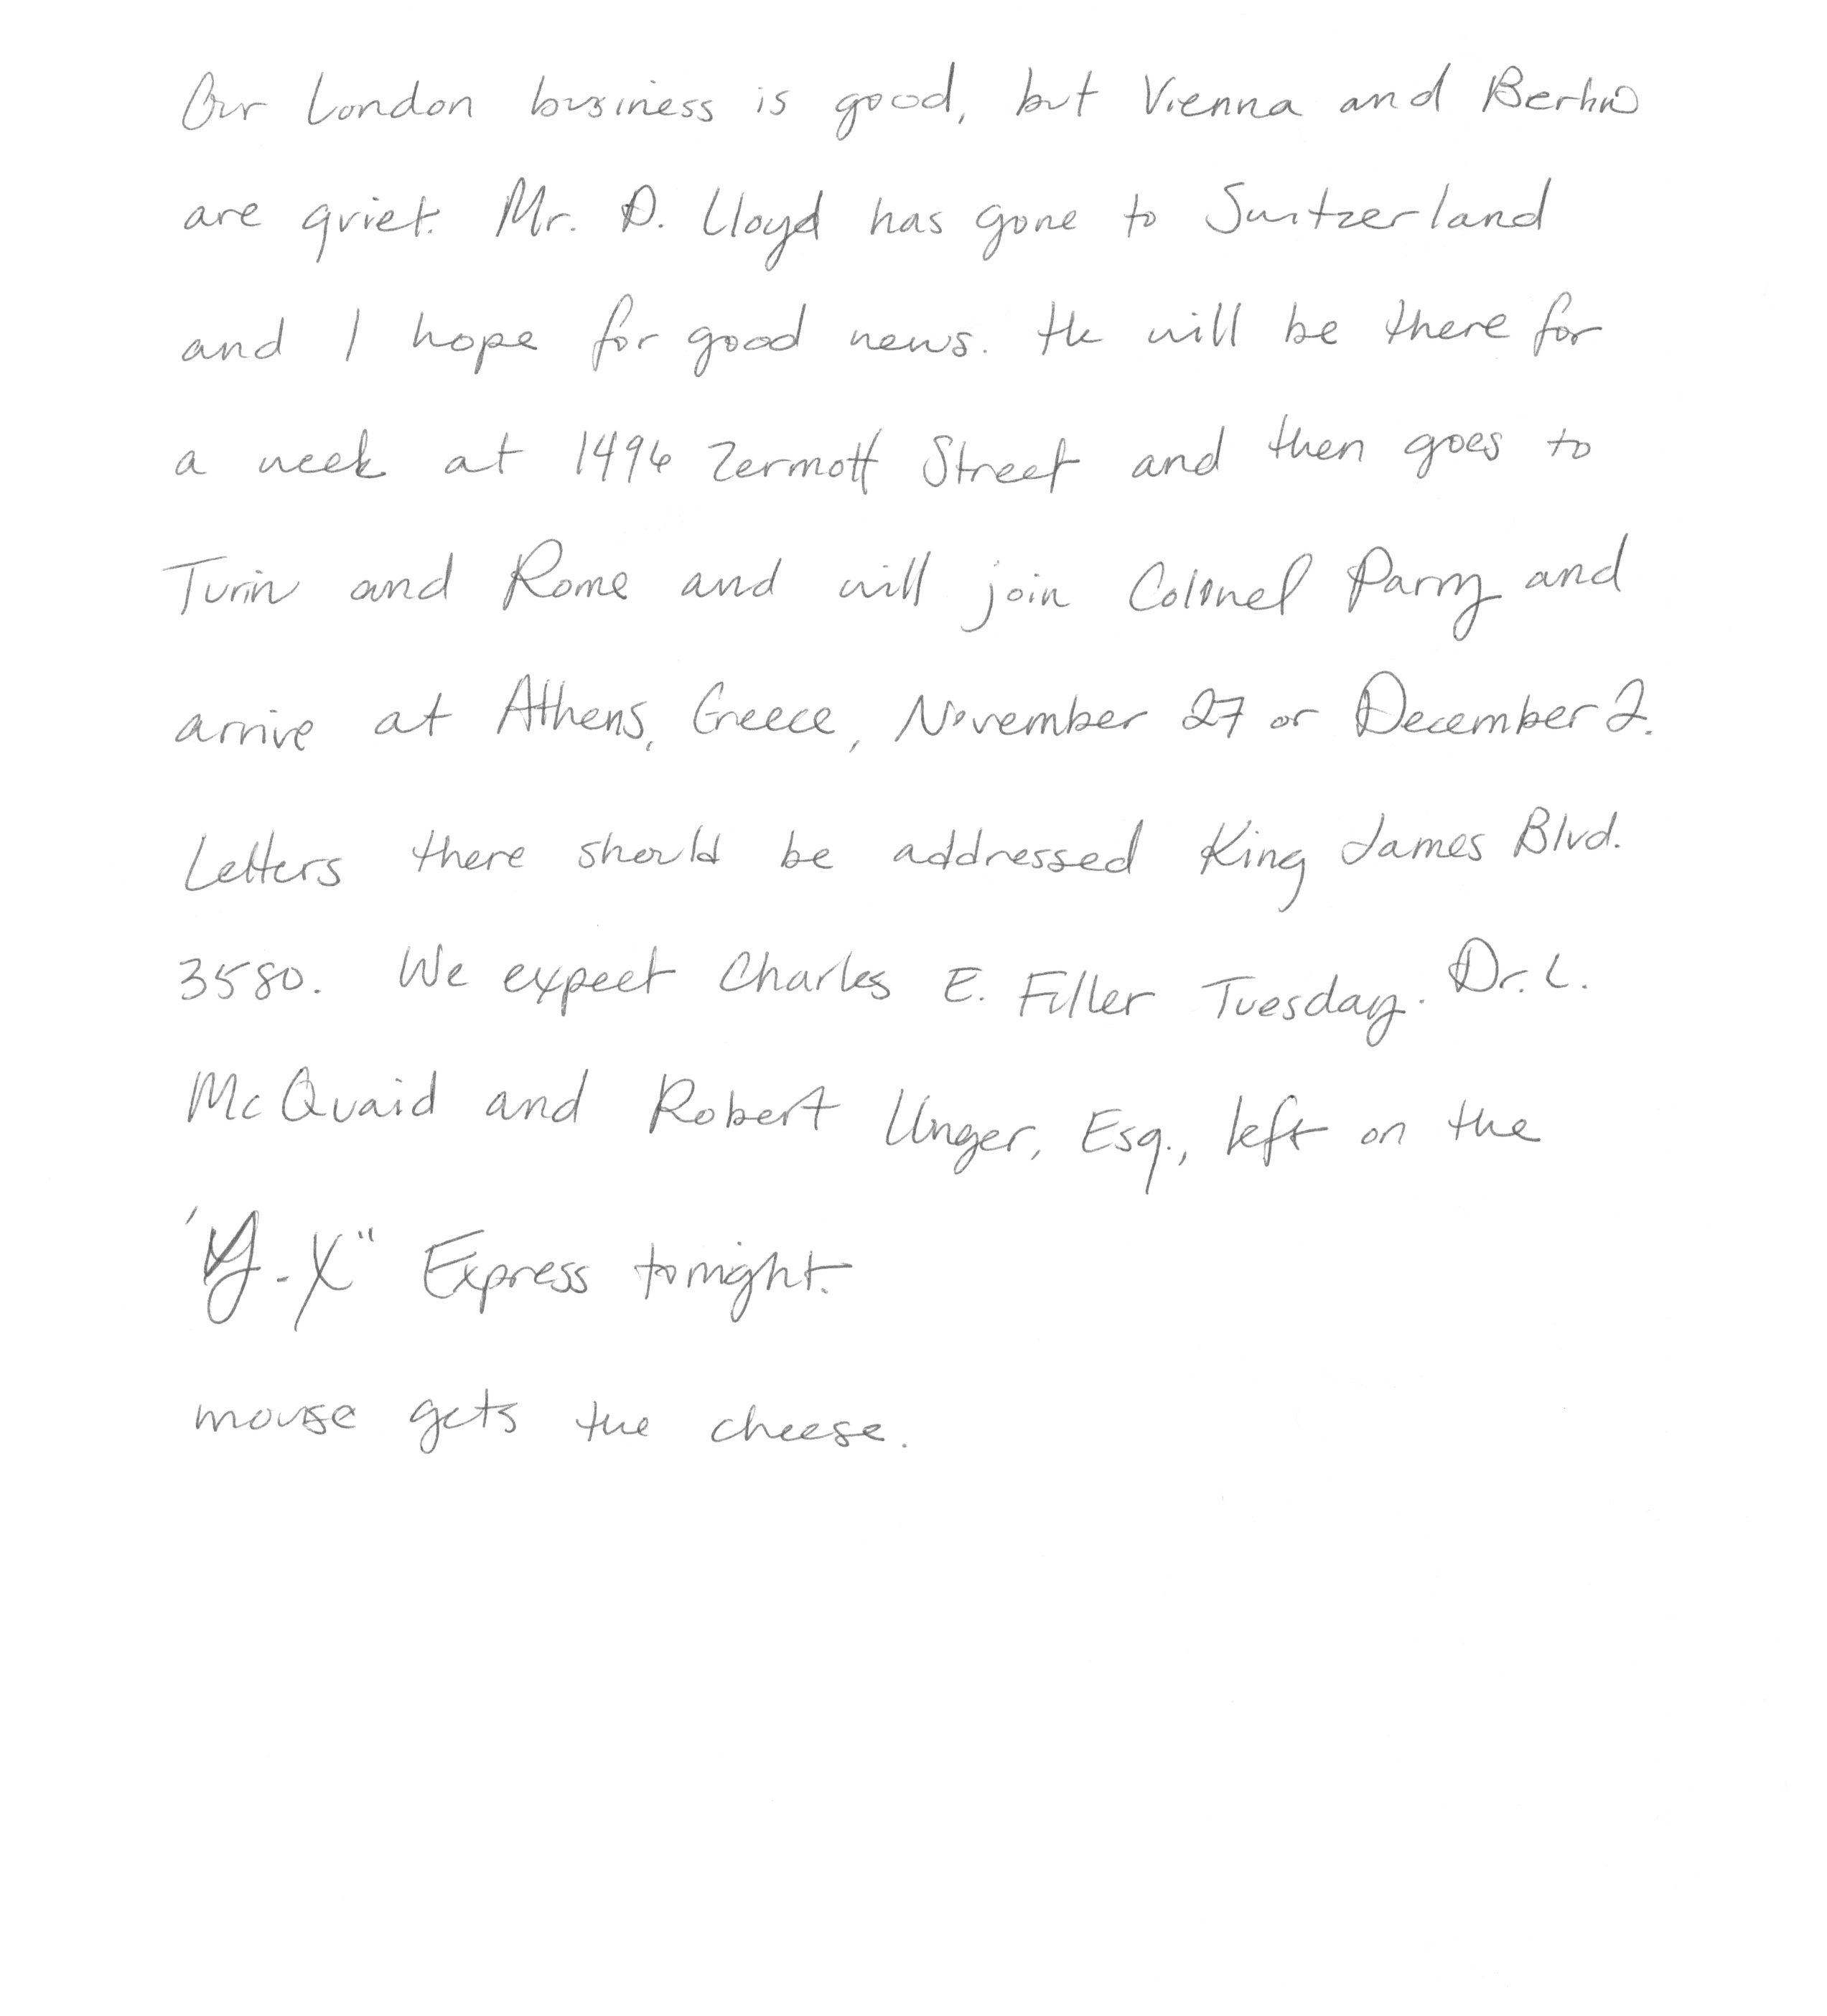 Our London business is good, but Vienna and Berlin
are quiet. Mr. D. Lloyd has gone to Switzerland
and I hope for good news. He will be there for
a week at 1496 Zermott Street and then goes to
Turin and Rome and will join Colonel Parry and
arrive at Athens, Greece, November 27 or December 2.
Letters there should be addressed King James Blvd.
3580. We expect Charles E. Fuller Tuesday. Dr. L.
McQuaid and Robert Unger, Esq., left on the
"Y-X" Express tonight.
mouse gets the cheese.